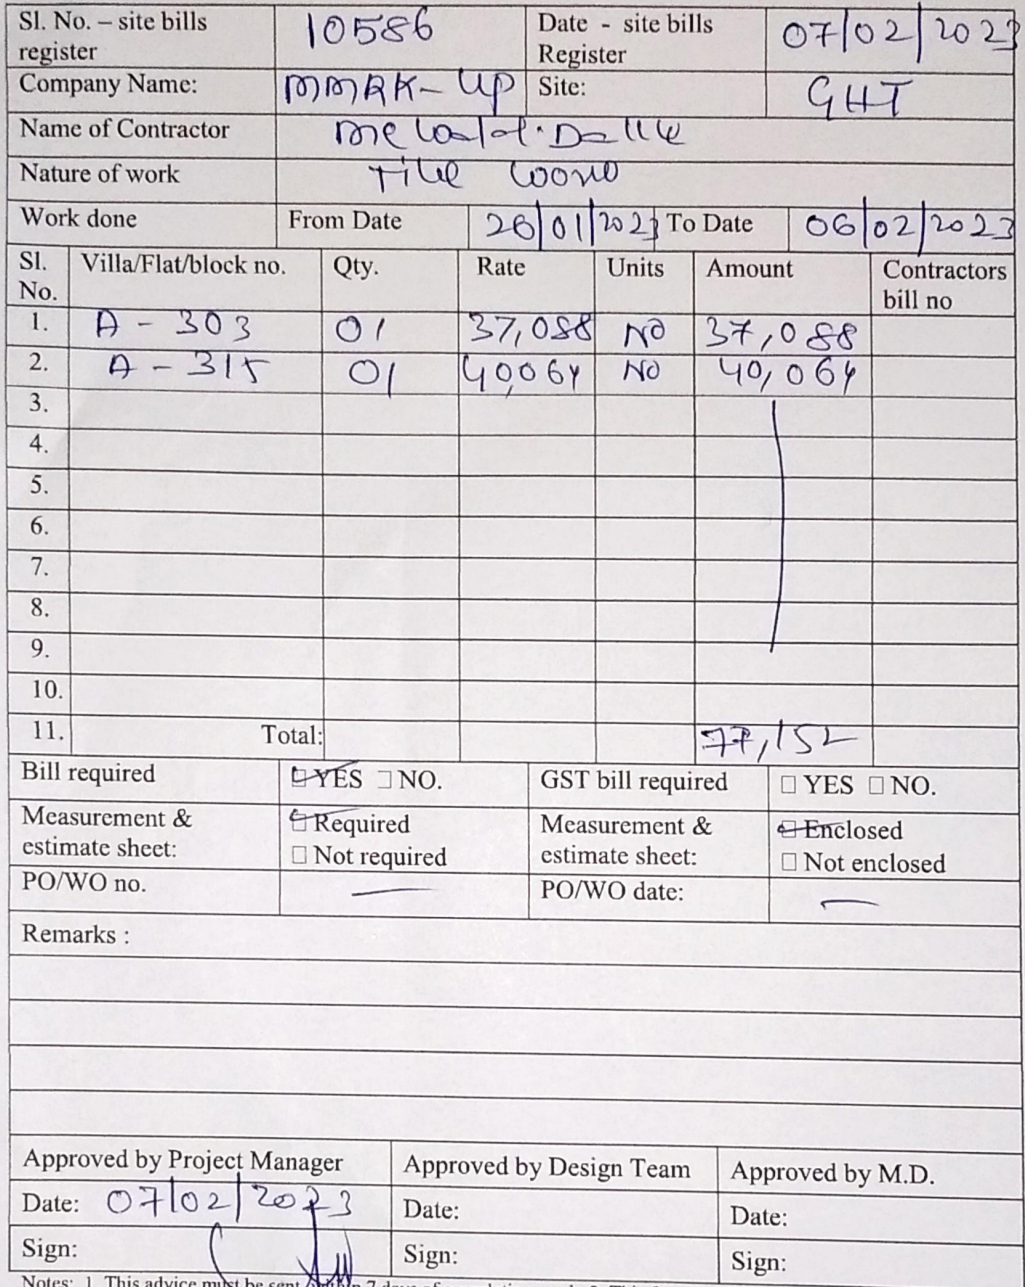 Sl. No. – site bills register 10586 Date - site bills Register 07/02/2023
Company Name: MMRK-UP Site: GHT
Name of Contractor
Nature of work Tile
Work done From Date 26/01/2023 To Date 06/02/2023
Sl. No. Villa/Flat/block no. Qty. Rate Units Amount Contractors bill no
1. A - 303 01 37,088 NO 37,088
2. A - 315 01 40,064 NO 40,064
3.
4.
5.
6.
7.
8.
9.
10.
11. Total: 77,152
Bill required YES NO. GST bill required YES NO.
Measurement & estimate sheet: Required Not required Measurement & estimate sheet: Enclosed Not enclosed
PO/WO no. PO/WO date:
Remarks :
Approved by Project Manager Approved by Design Team Approved by M.D.
Date: 07/02/2023 Date: Date:
Sign: Sign: Sign:
Notes: 1. This advice must be sent